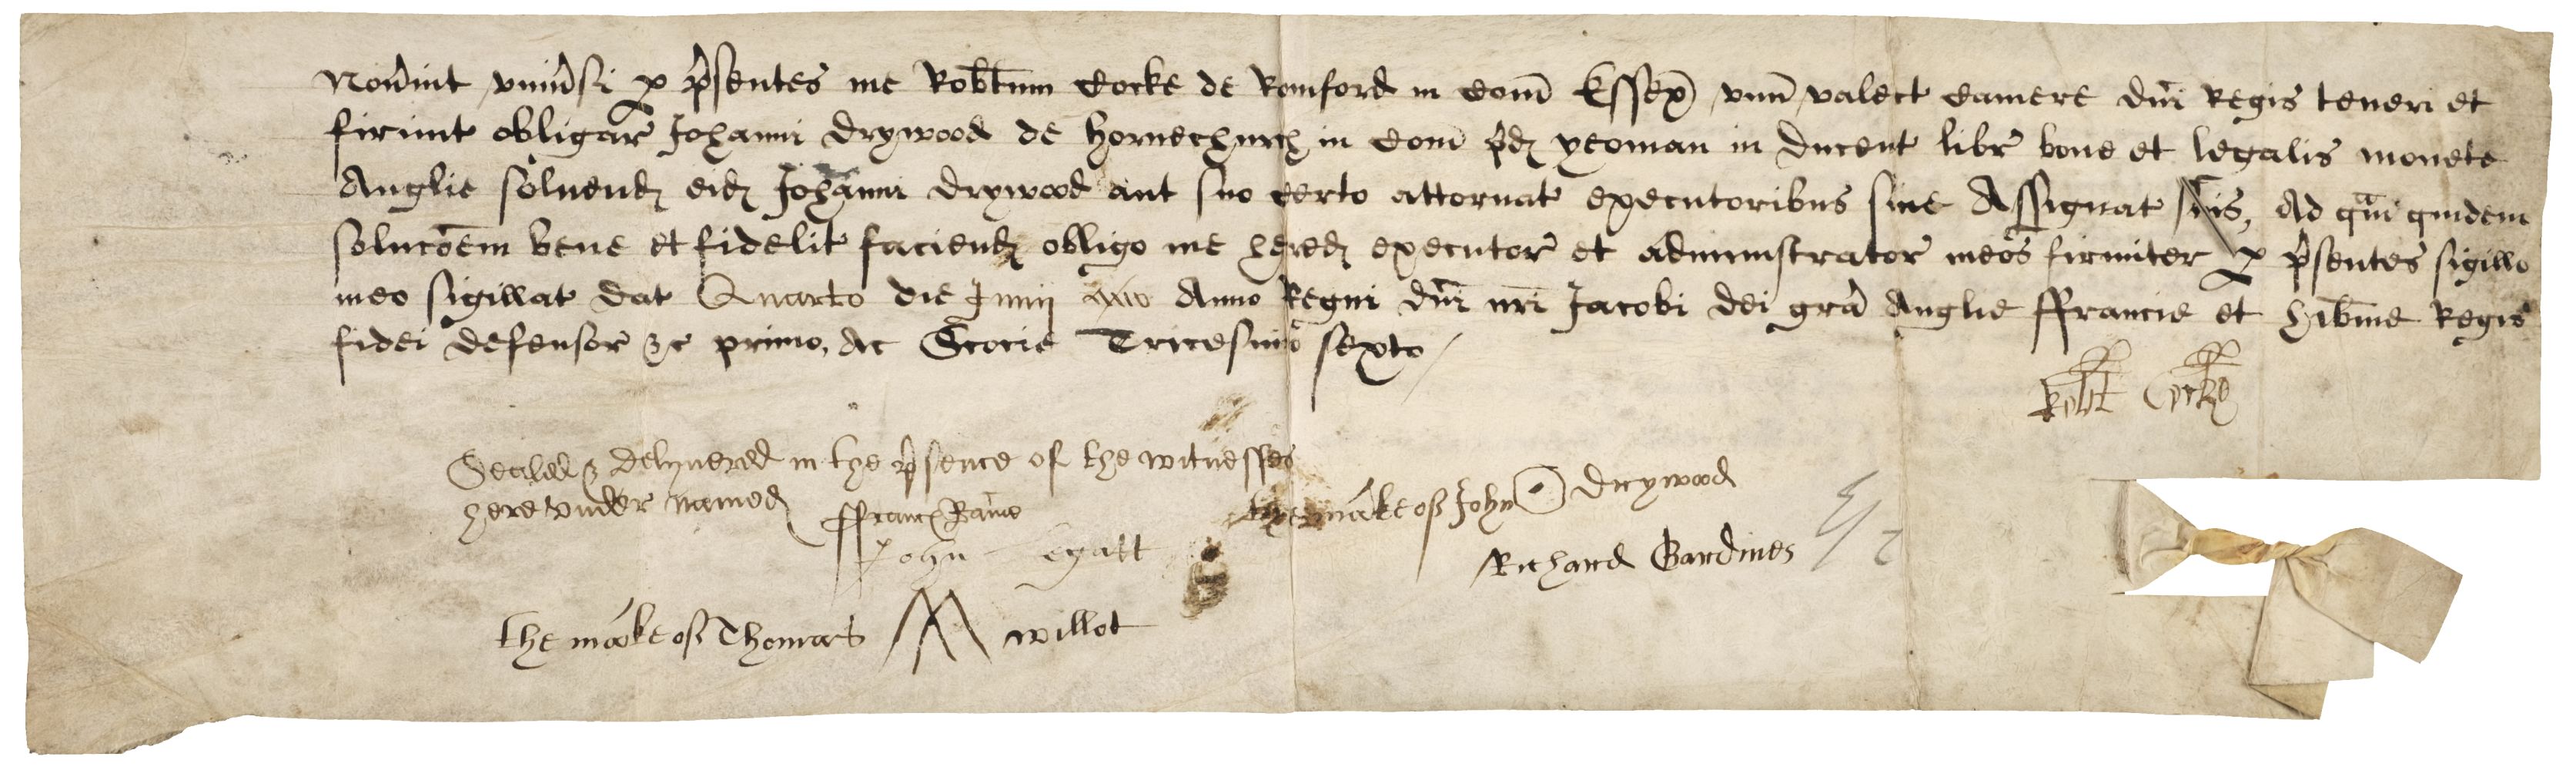 Nou͞int vniu͞si p p͞sentes me Rob͞tum Cocke de Romford in Com͞ Essex͞ vnu͞ valect Camere Dn͞i Regis teneri et
firmit obligar Johanni Drywood de Hornechurch in Com͞ p͞d yeoman in Ducent libr bone et legalis monete
Anglie soluend eid Johanni Drywood aut suo certo attornat executoribus siue Assignat suis, Ad qua͞ quidem
soluco͞em bene et fidelit faciend obligo me hered executor et administrator meos firmiter p p͞sentes sigillo
meo sigillat Dat Quarto die Junij Anno Regni Dn͞i nr͞i Jacobi Dei gra͞ Anglie ffrancie et Hib͞nie Regis
fidei defensor &c primo, Ac Scocie Tricesimo sexto
Rob͞t Cocke
Sealed & delyuered in the p͞sence of the witnesses
here vnder named
ffranc Rame
the marke of John Drywood
John Legatt
Richard Gardines
the marke of Thomas Willot